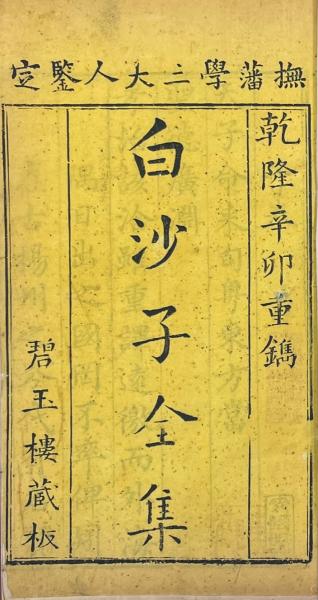 撫藩學三大人鑒定
乾隆辛卯重鐫
白沙子全集
碧玉樓藏板